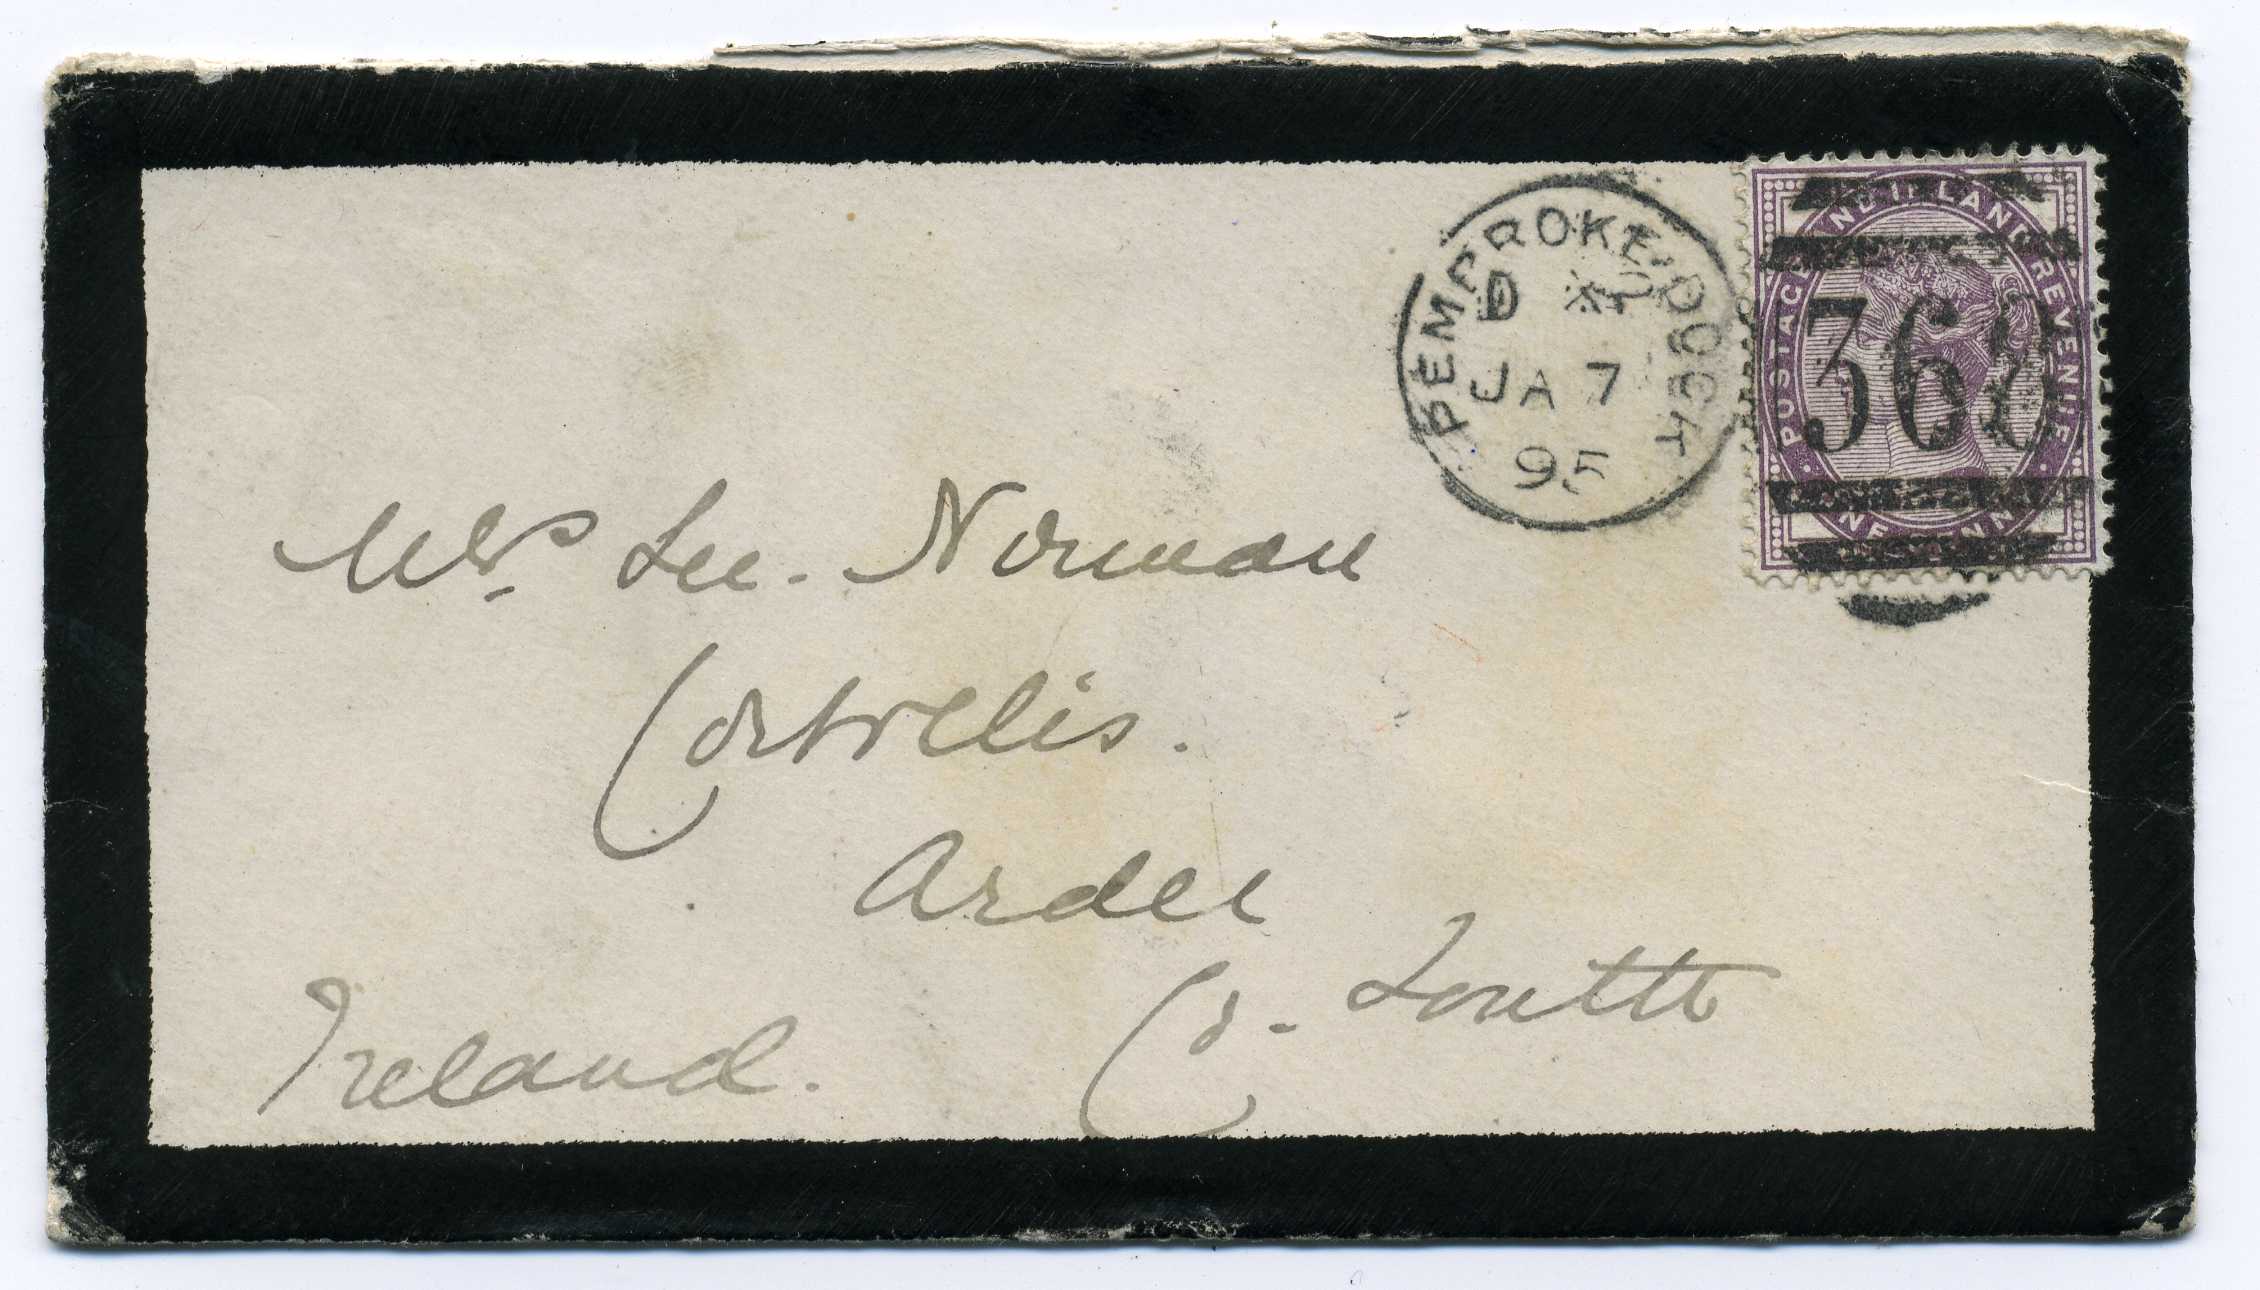 PEMBROKE-DOCK
D
JA 7
95
POSTAGE AND INLAND REVENUE
ONE PENNY
Mrs. Lee. Norman
Corbollis.
Ardee
Co. Louth
Ireland.